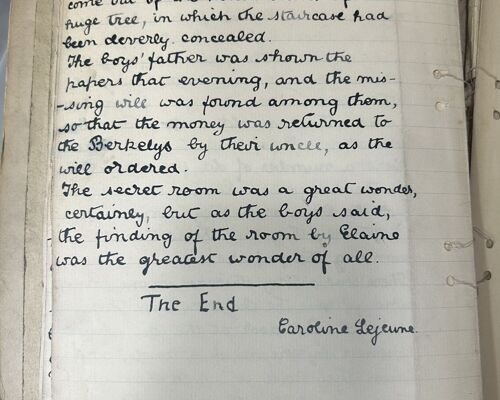 huge tree, in which the staircase had
been cleverly concealed.
The boys' father was shown the
papers that evening, and the mis-
-sing will was found among them,
so that the money was returned to
the Berkelys by their uncle, as the
will ordered.
The secret room was a great wonder,
certainly, but as the boys said,
the finding of the room by Elaine
was the greatest wonder of all.
The End
Caroline Lejeune.